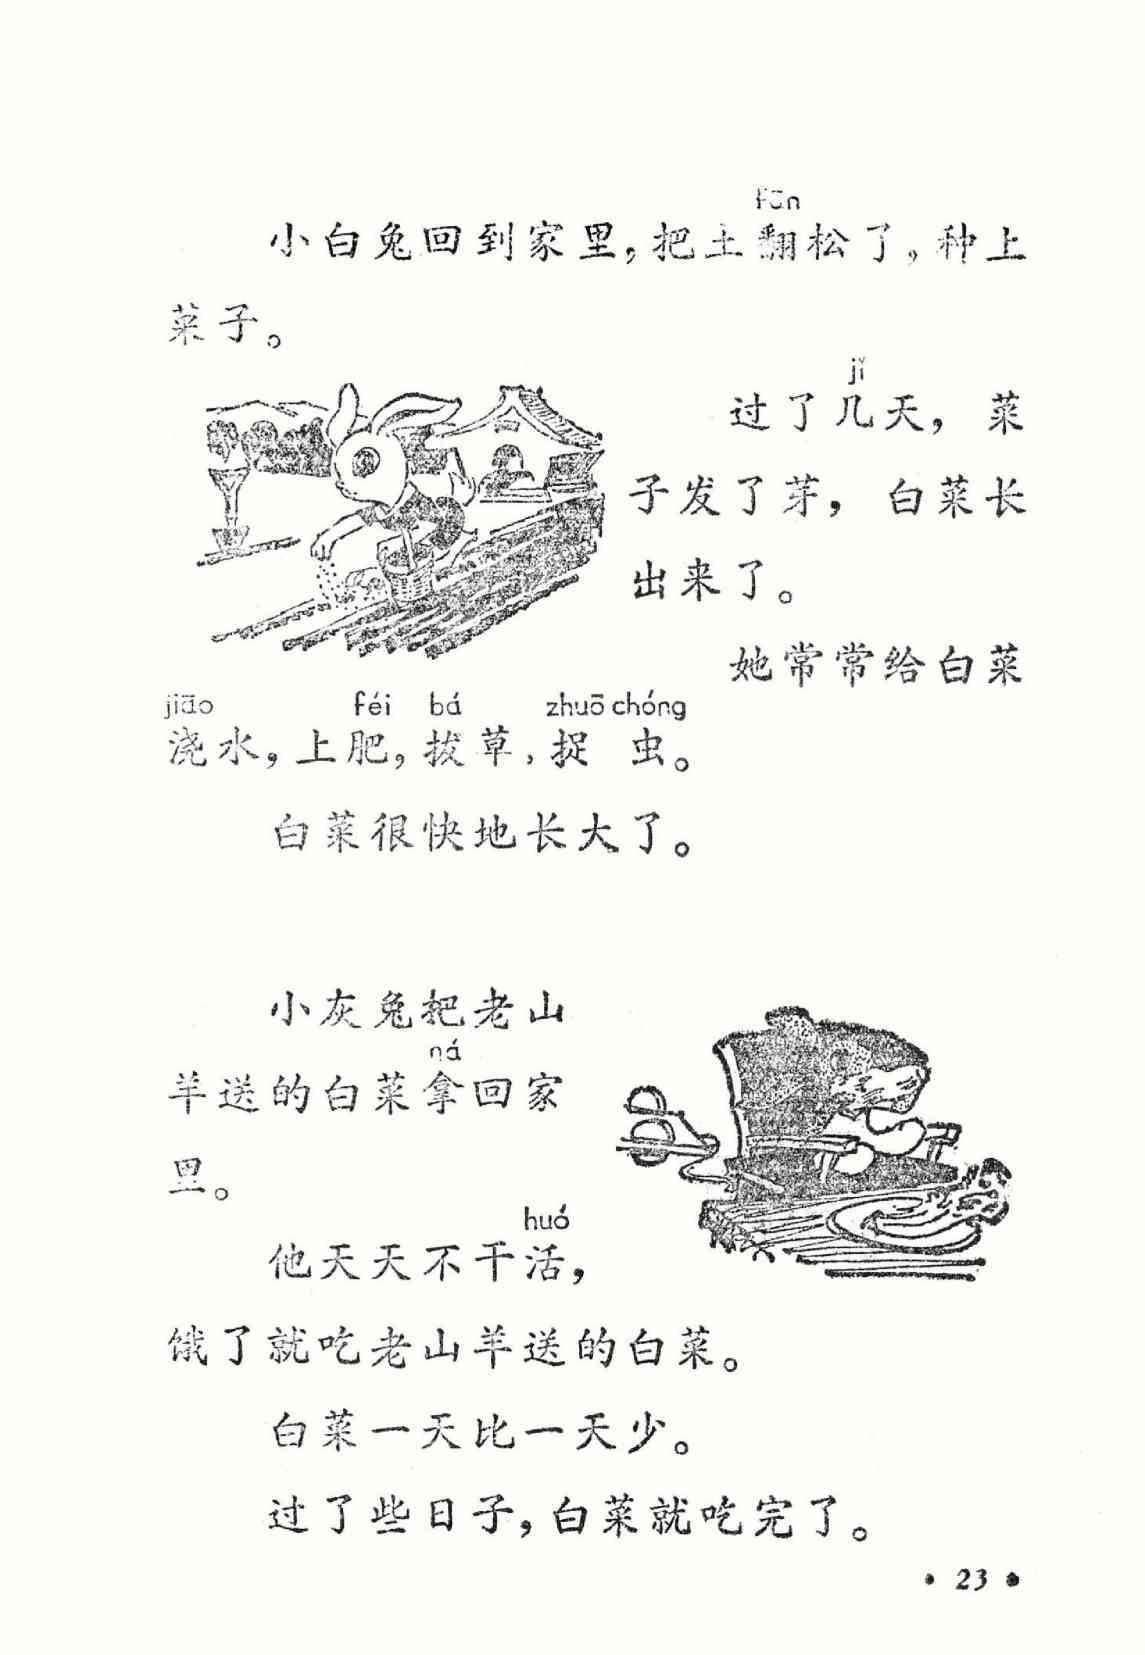 fān
小白兔回到家里，把土翻松了，种上
菜子。
jǐ
过了几天，菜
子发了芽，白菜长
出来了。
她常常给白菜
jiāo féi bá zhuō chóng
浇水，上肥，拔草，捉虫。
白菜很快地长大了。
小灰兔把老山
ná
羊送的白菜拿回家
里。
huó
他天天不干活，
饿了就吃老山羊送的白菜。
白菜一天比一天少。
过了些日子，白菜就吃完了。
• 23 •